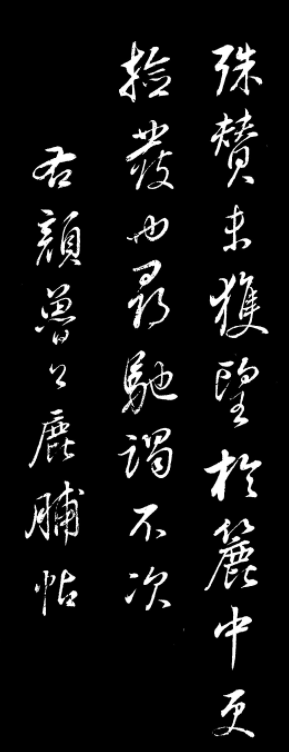 殊賛未獲望於簏中更
撿發也尋馳謁不次
右顔魯公鹿脯帖